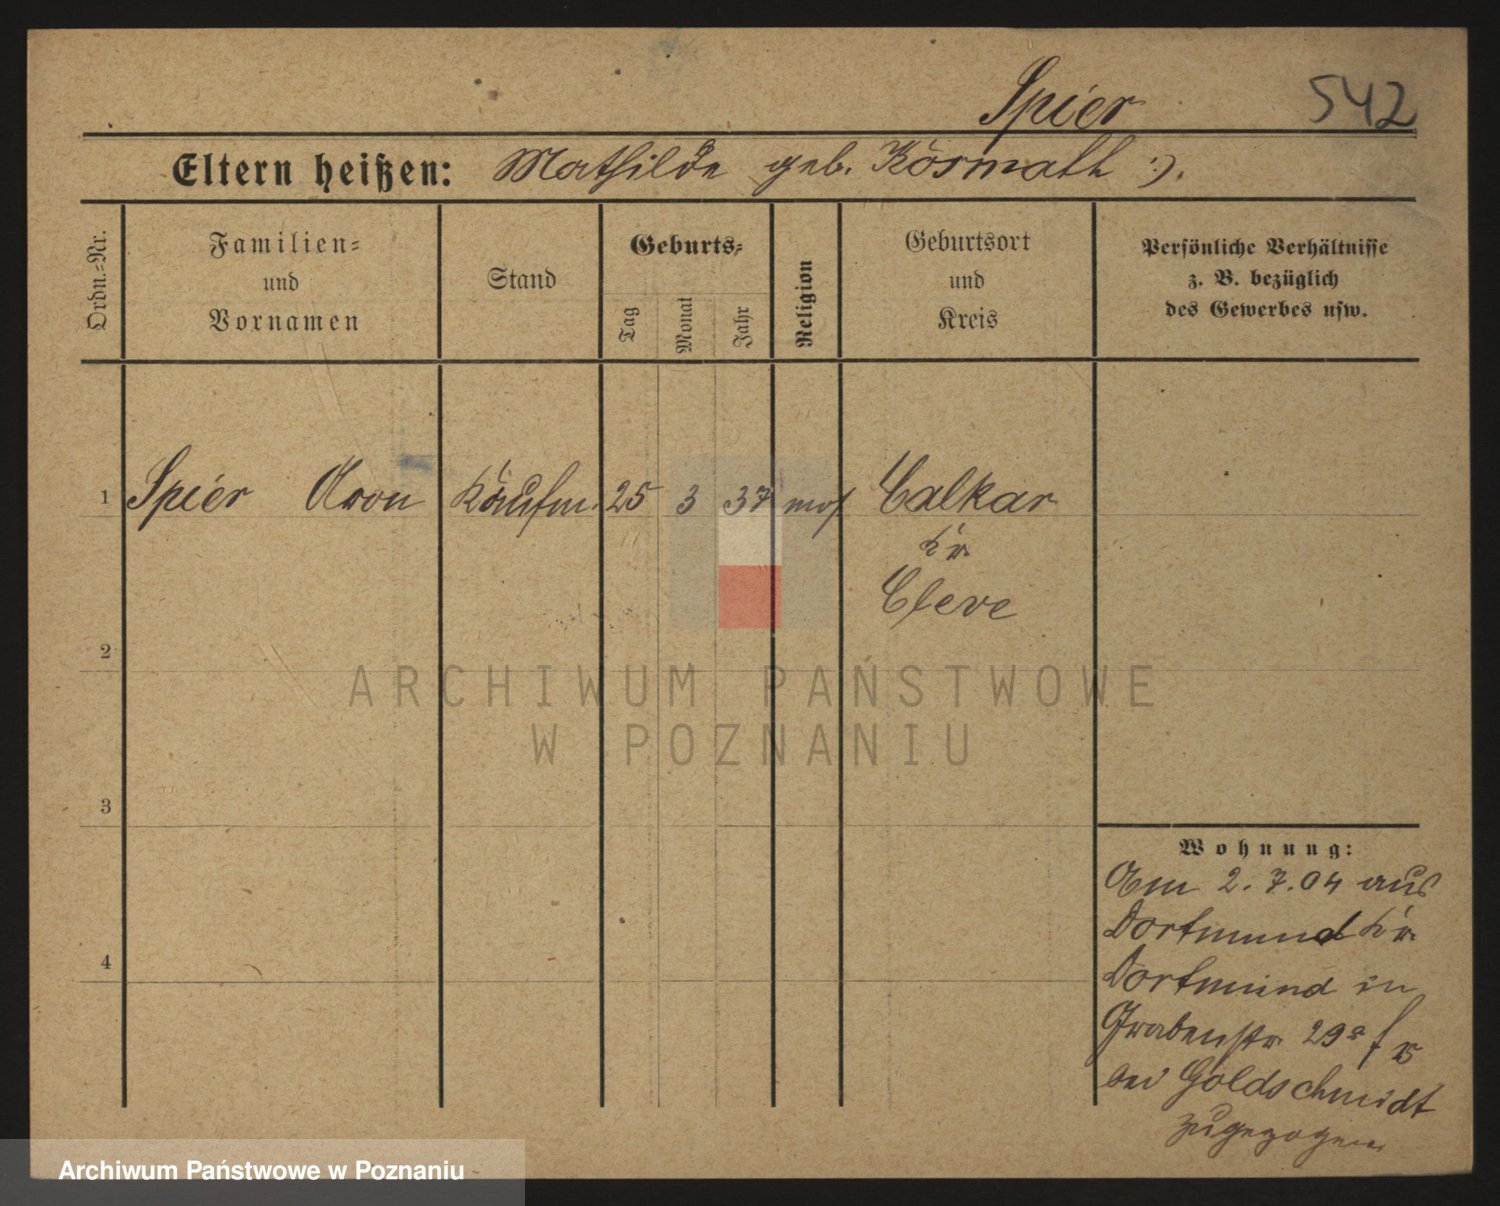 Spier 542
Eltern heißen: Mathilde geb. Kosmath :).
Ordn.-Nr.
Familien-
und
Vornamen
Stand
Geburts-
Tag
Monat
Jahr
Religion
Geburtsort
und
Kreis
Persönliche Verhältnisse
z. B. bezüglich
des Gewerbes usw.
1 Spier Aron Kaufm. 25 3 37 mos Calkar
Kr.
Cleve
2
ARCHIWUM PAŃSTWOWE
W POZNANIU
3
4
Wohnung:
Am 2.7.04 aus
Dortmund Kr.
Dortmund in
Grabenstr 29a
bei Goldschmidt
zugezogen
Archiwum Państwowe w Poznaniu